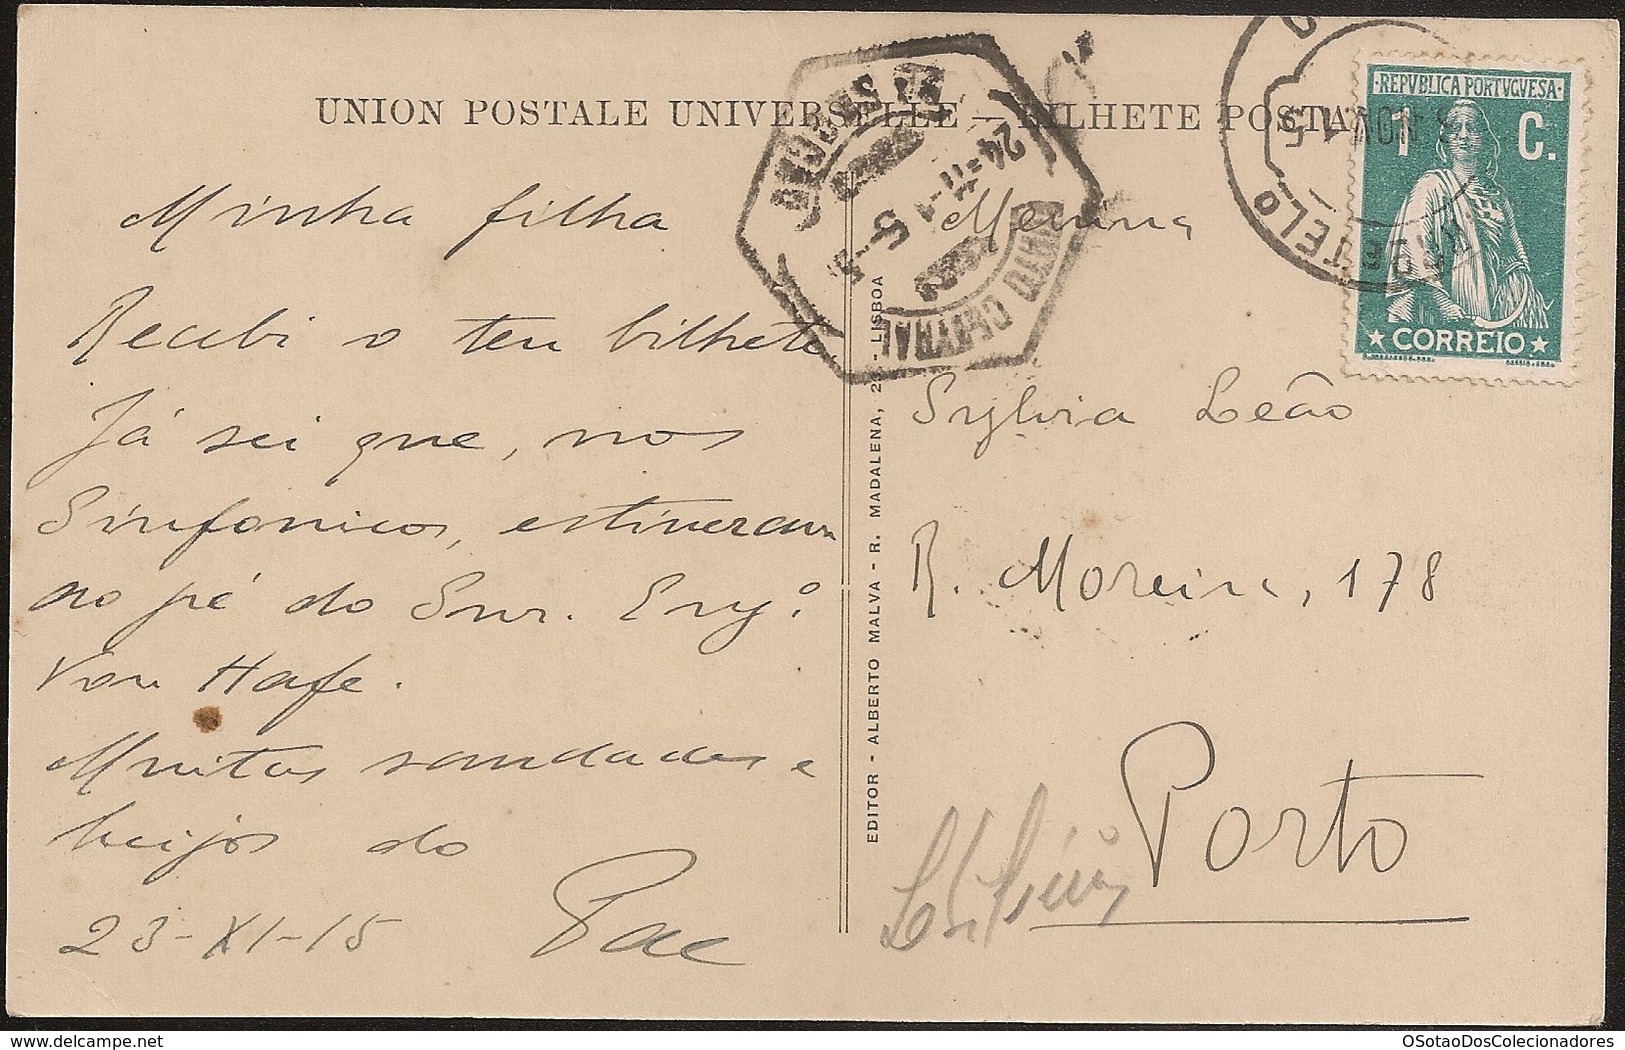 UNION POSTALE UNIVERSELLE — BILHETE POSTAL
REPVBLICA PORTVGVESA
1 C.
CORREIO
CASTELO
CENTRAL
24-11-15
Minha filha
Recebi o teu bilhete
Já sei que, nos
Sinfonicos, estiveram
ao pé do Snr. Eng.º
Von Hafe.
Muitas saudades e
beijos do
Pae
23-XI-15
EDITOR - ALBERTO MALVA - R. MADALENA, 23 - LISBOA
Menina
Sylvia Leão
R. Moreira, 178
Porto
OSotaoDosColecionadores
www.delcampe.net